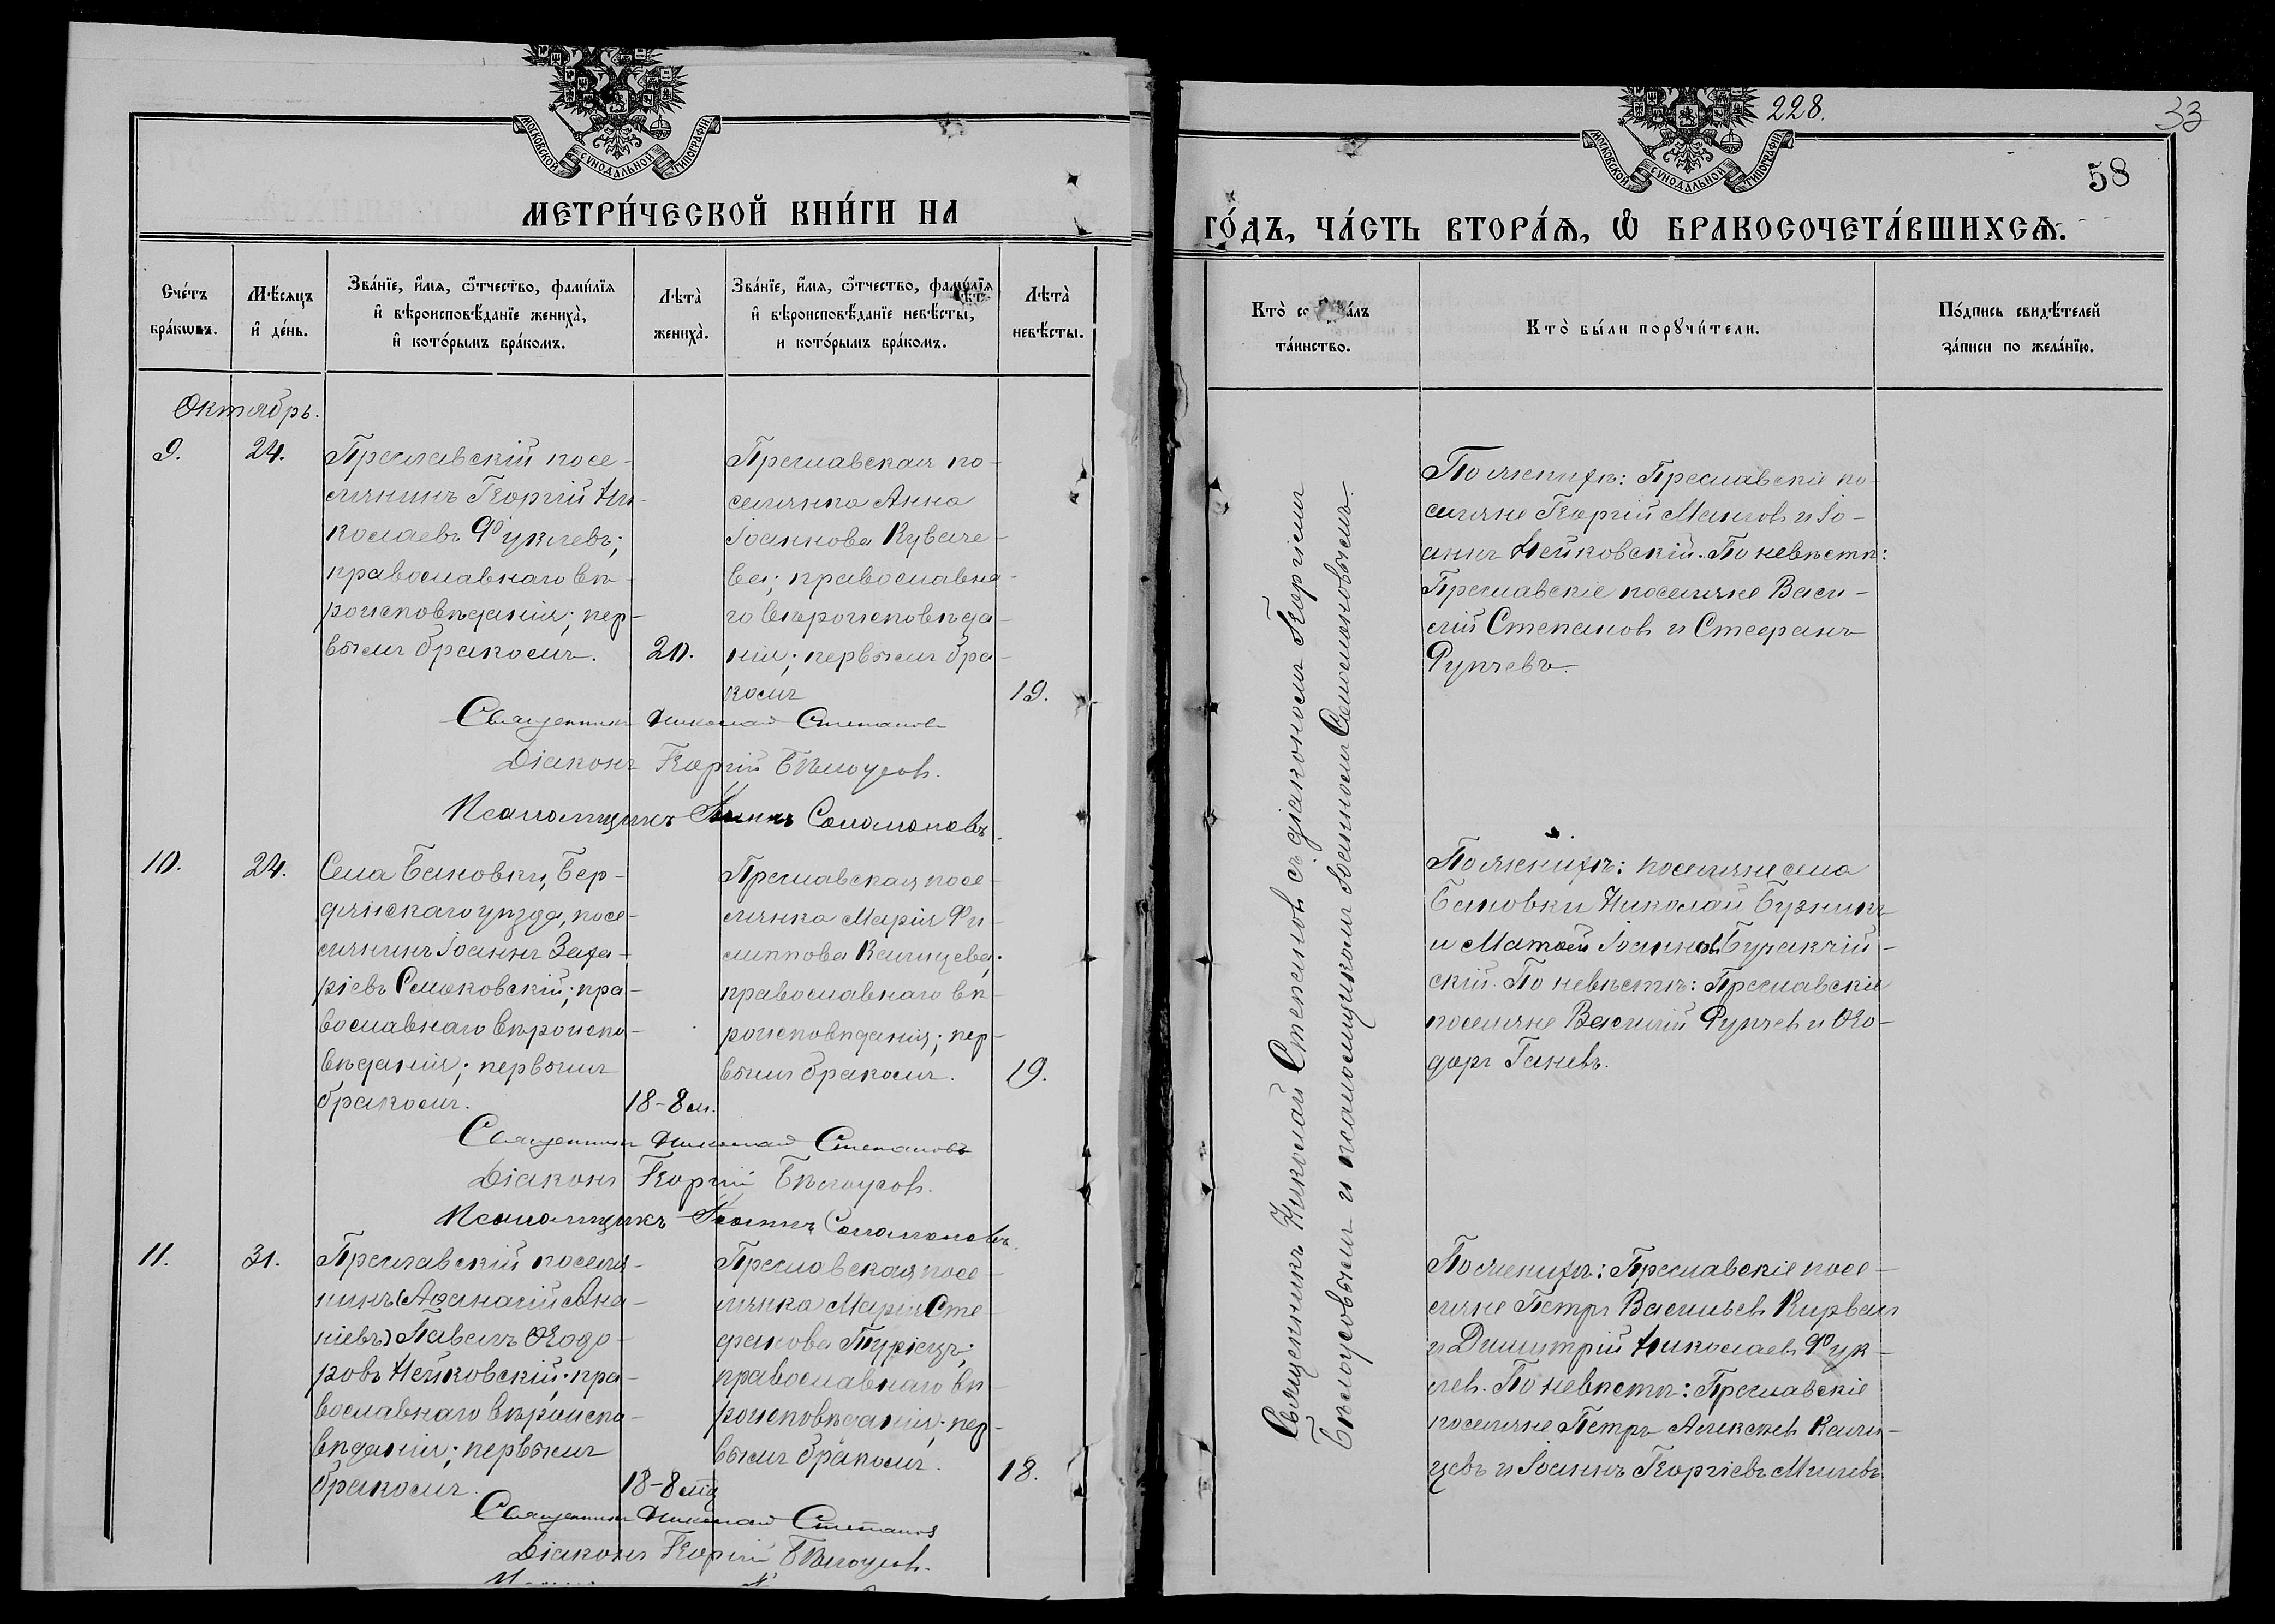 МОСКОВСКОЙ СѴНОДАЛЬНОЙ ТИПОГРАФІИ
МЕТРИ́ЧЕСКОЙ КНИ́ГИ НА
Сче́тъ бра́кωвъ.
Мѣ́сяцъ и҆ де́нь.
Зва́нїе, и҆́мя, ѻ҆́тчество, фами́лїя и҆ вѣроисповѣ́данїе жениха̀, и҆ кото́рымъ бра́комъ.
Лѣта̀ жениха̀.
Зва́нїе, и҆́мя, ѻ҆́тчество, фами́лїя и҆ вѣроисповѣ́данїе невѣ́сты, и кото́рымъ бра́комъ.
Лѣта̀ невѣ́сты.
Октябрь.
9.
24.
Преславскій посе-
лянинъ Георгій Ни-
колаевъ Фуклевъ;
православнаго вѣ-
роисповѣданія; пер-
вымъ бракомъ.
20.
Преславская по-
селянка Анна
Іоаннова Куваче-
ва; православна-
го вѣроисповѣда-
нія; первымъ бра-
комъ
19.
Священникъ Николай Степановъ
Діаконъ Георгій Бѣлоусовъ.
Псаломщикъ Іоаннъ Соломоновъ.
10.
24.
Села Бановки, Бер-
дянскаго уѣзда, посе-
лянинъ Іоаннъ Заха-
ріевъ Смоковскій; пра-
вославнаго вѣроиспо-
вѣданія; первымъ
бракомъ.
18-8 м.
Преславская посе-
лянка Марія Фи-
липпова Калицева;
православнаго вѣ-
роисповѣданія; пер-
вымъ бракомъ.
19.
Священникъ Николай Степановъ
Діаконъ Георгій Бѣлоусовъ.
Псаломщикъ Іоаннъ Соломоновъ.
11.
31.
Преславскій поселя-
нинъ (Аѳанасій Ана-
ніевъ) Павелъ Ѳеодо-
ровъ Нейковскій; пра-
вославнаго вѣроиспо-
вѣданія; первымъ
бракомъ.
18-8 мц
Преславская посе-
лянка Марія Сте-
фанова Турлецъ;
православнаго вѣ-
роисповѣданія; пер-
вымъ бракомъ.
18.
Священникъ Николай Степановъ
Діаконъ Георгій Бѣлоусовъ.
228.
33
58
МОСКОВСКОЙ СѴНОДАЛЬНОЙ ТИПОГРАФІИ
ГО́ДЪ, ЧА́СТЬ ВТОРА́Я, Ѽ БРАКОСОЧЕТА́ВШИХСЯ.
Кто̀ та́инство.
Кто̀ бы́ли порꙋчи́тели.
По́дпись свидѣ́телей за́писи по жела́нїю.
Священникъ Николай Степановъ съ діакономъ Георгіемъ
Бѣлоусовымъ и псаломщикомъ Іоанномъ Соломоновымъ.
По женихѣ: Преславскіе по-
селяне Георгій Мангов и Іо-
аннъ Нейковскій. По невѣстѣ:
Преславскіе поселяне Васи-
лій Степановъ и Стефанъ
Рупчевъ.
По женихѣ: поселяне села
Бановки Николай Бузникъ
и Матѳей Іоанновъ Буракчій-
скій. По невѣстѣ: Преславскіе
поселяне Василій Рупчевъ и Ѳео-
доръ Ганевъ.
По женихѣ: Преславскіе посе-
ляне Петръ Васильевъ Кирван
и Димитрій Николаевъ Фук-
левъ. По невѣстѣ: Преславскіе
поселяне Петръ Алексѣевъ Кали-
цевъ и Іоаннъ Георгіевъ Милевъ.